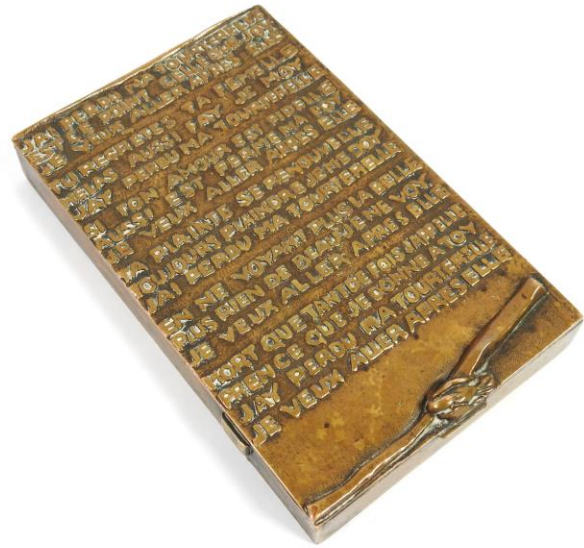 JAI PERDU MA TOURTERELLE
EST CE POINT CELLE QUE JOY
JE VEUX ALLER APRES ELLE
TU REGRETTES TA FEMELLE
HELAS AUSSI FAY JE MOY
JAY PERDU MA TOURTERELLE
SI TON AMOUR EST FIDELLE
AUSSI EST FERME MA FOY
JE VEUX ALLER APRES ELLE
TA PLAINTE SE RENOUVELLE
TOUJOURS PLAINDRE JE ME DOY
JAI PERDU MA TOURTERELLE
EN NE VOYANT PLUS LA BELLE
PLUS RIEN DE BEAU JE NE VOY
JE VEUX ALLER APRES ELLE
MORT QUE TANT DE FOIS JAPPELLE
PREN CE QUE JE DONNE A TOY
JAY PERDU MA TOURTERELLE
JE VEUX ALLER APRES ELLE